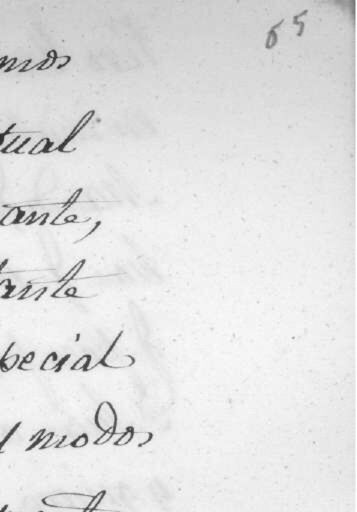 65
mos
tual
ante,
tante
special
modos